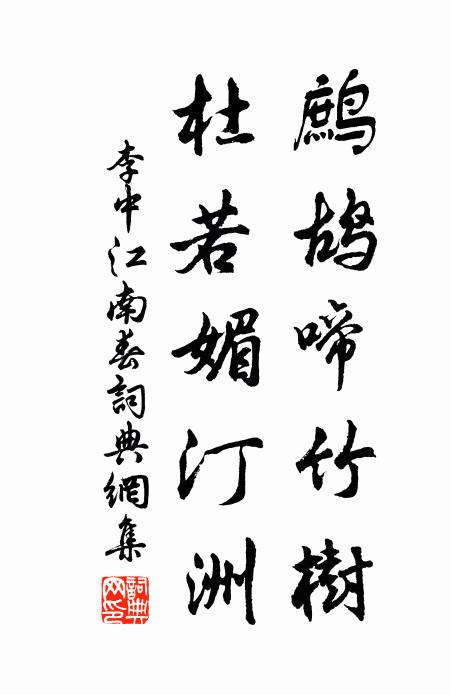 鷓鴣啼竹樹
杜若媚汀洲
李中江南春詞典網集
詞典網印